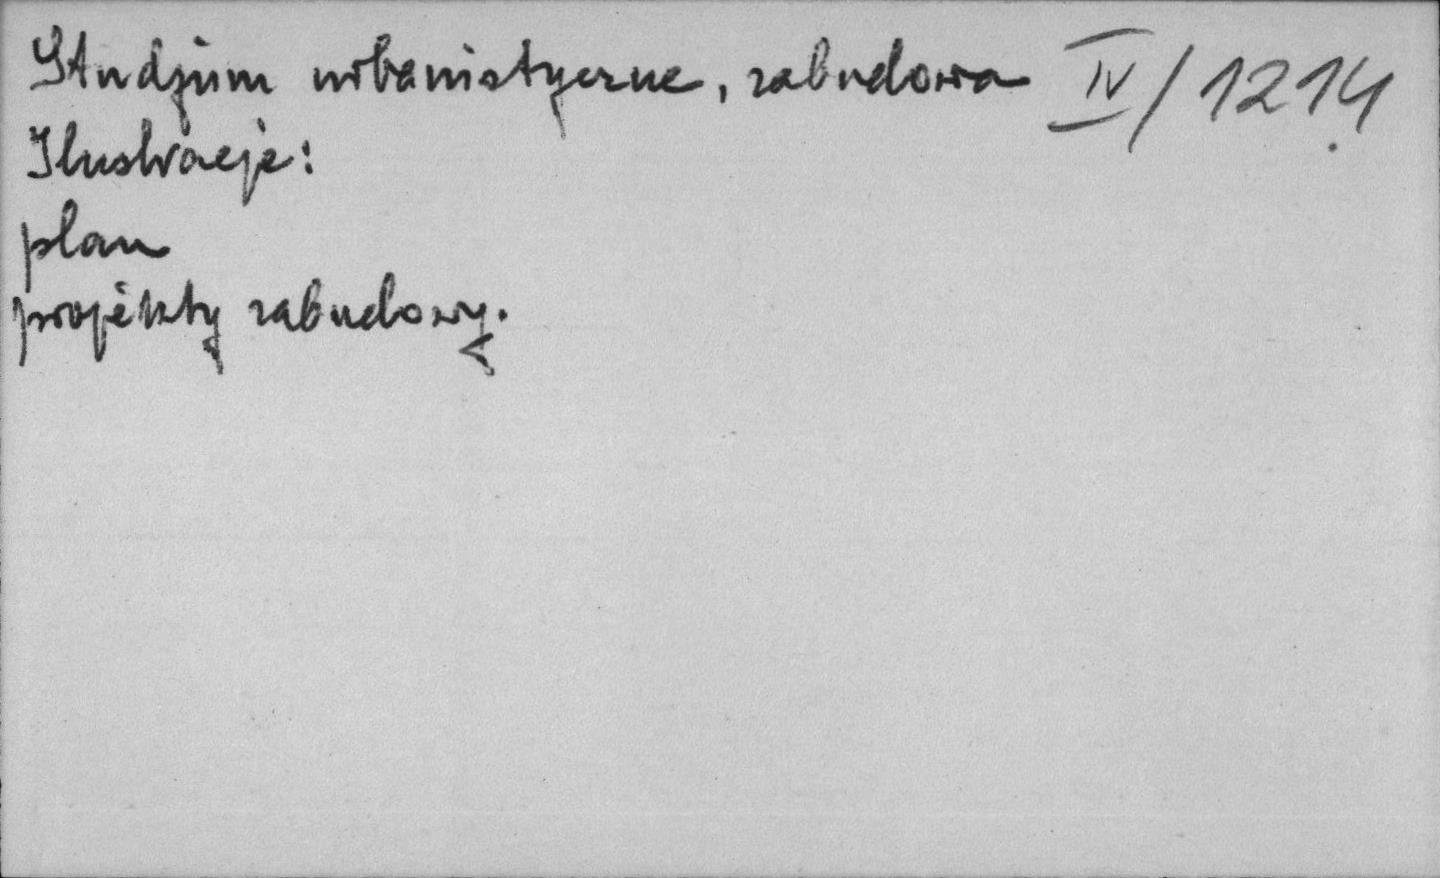 Studjum urbanistyczne, zabudowa IV/1214
Ilustracje:
plan
projekty zabudowy.